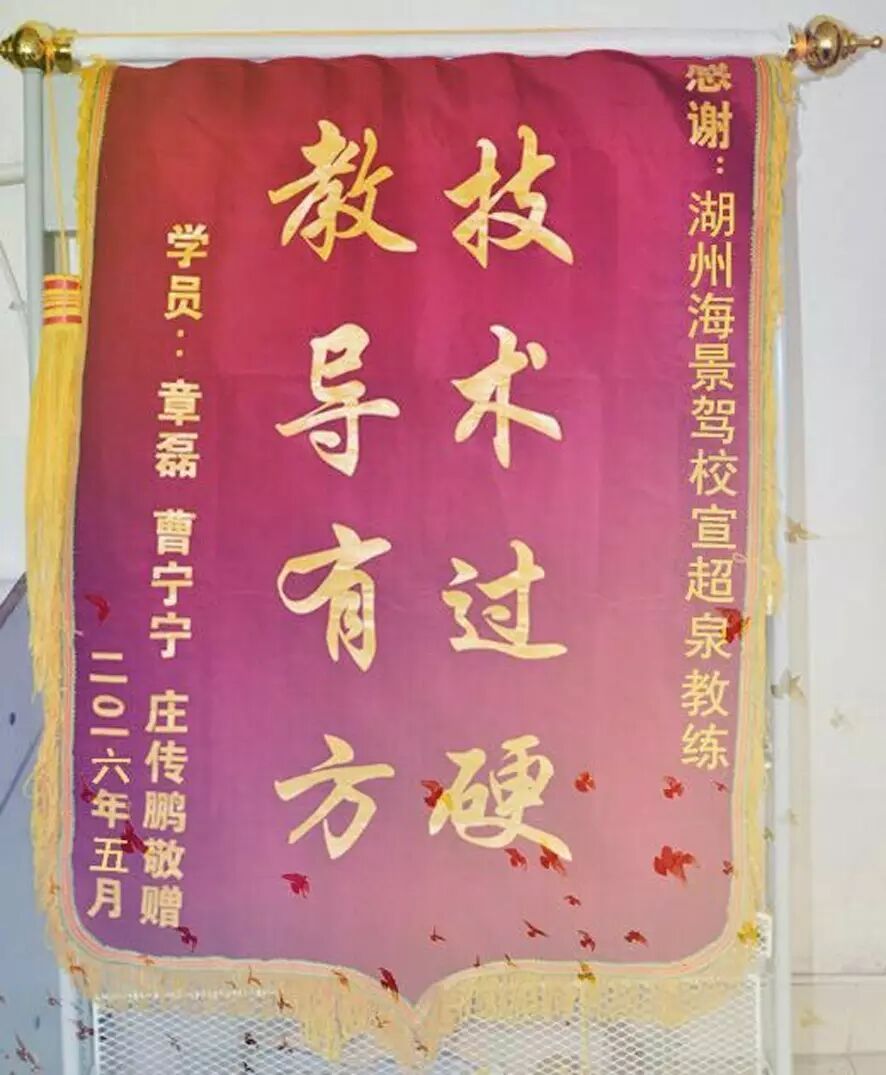 感谢：湖州海景驾校宣超泉教练
技术过硬
教导有方
学员：章磊 曹宁宁 庄传鹏敬赠
二〇一六年五月